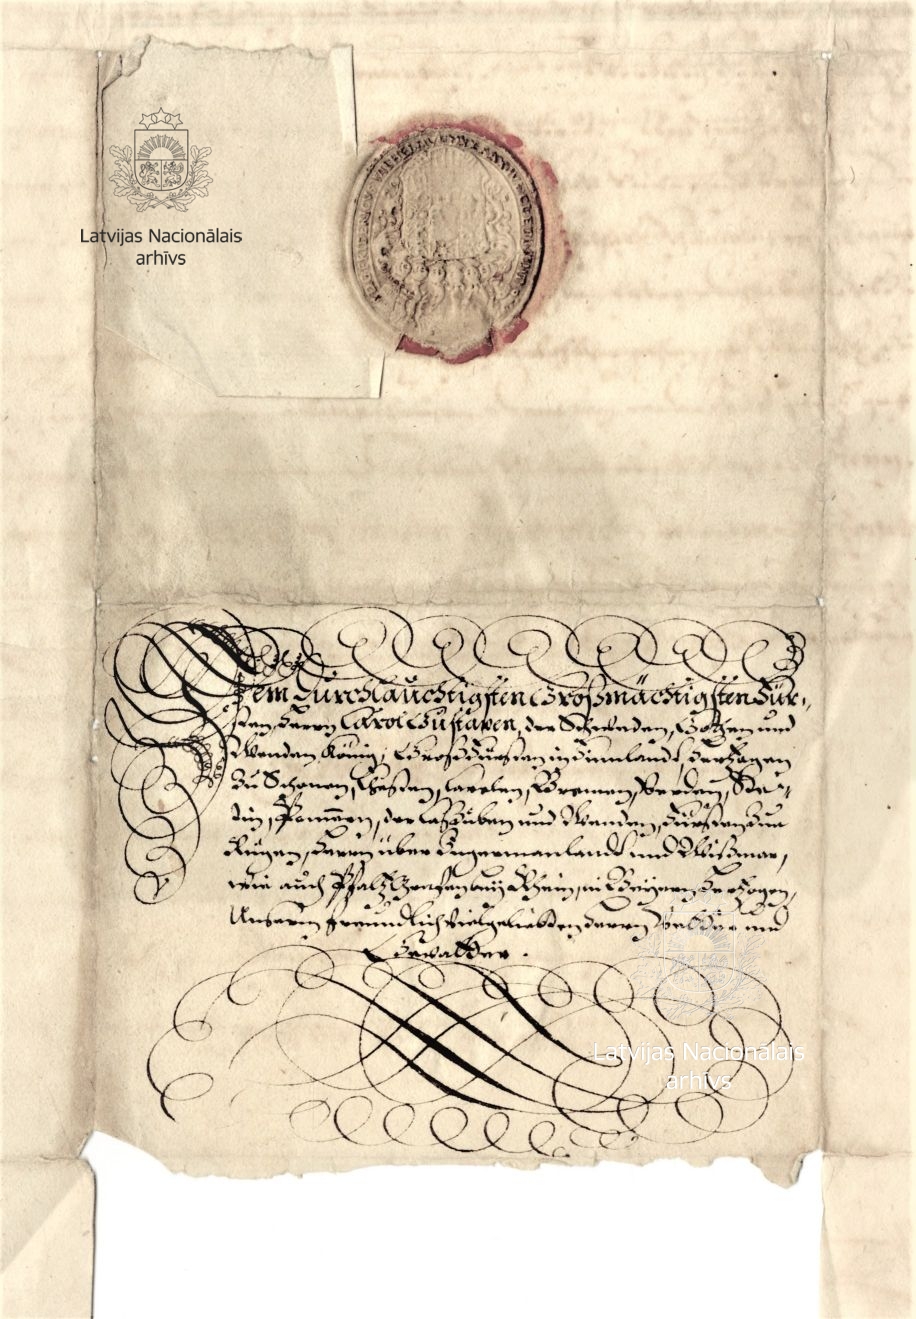 Latvijas Nacionālais
arhīvs
Dem Durchlauchtigsten Großmächtigsten Für-
sten, Herrn Carol Gustaven, der Schweden, Gothen und
Wenden König, Großfürsten in Finnlandt, Hertzogen
zu Schonen, Ehesten, Carelen, Bremen, Verden, Ste-
tin, Pommern, der Caßuben und Wenden, Fürsten zu
Rügen, Herrn über Ingermanlandt und Wißmar,
wie auch Pfaltzgrafen beij Rhein, in Beÿern Hertzogen,
Unserm freundlich vielgeliebten Herrn und
Latvijas Nacionālais
arhīvs